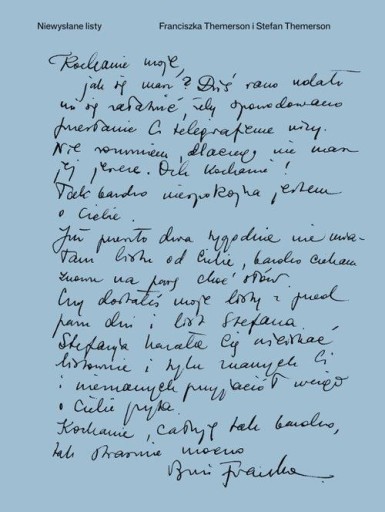 Niewysłane listy
Franciszka Themerson i Stefan Themerson
Kochanie moje,
jak się masz? Dziś rano udało
mi się załatwić, żeby spowodowano
przesłanie Ci telegraficzne wizy.
Nie rozumiem, dlaczego nie masz
jej jeszcze. Och Kochanie!
Tak bardzo niespokojna jestem
o Ciebie.
Już prawie dwa tygodnie nie mia-
łam listu od Ciebie, bardzo czekam
znowu na parę choć słów.
Czy dostałeś moje listy z przed
paru dni i list Stefana.
Stefania kazała Cię uściskać
listownie i tylu znanych Ci
i nieznanych przyjaciół wciąż
o Ciebie pyta.
Kochanie, całuję tak bardzo,
tak strasznie mocno
Franka